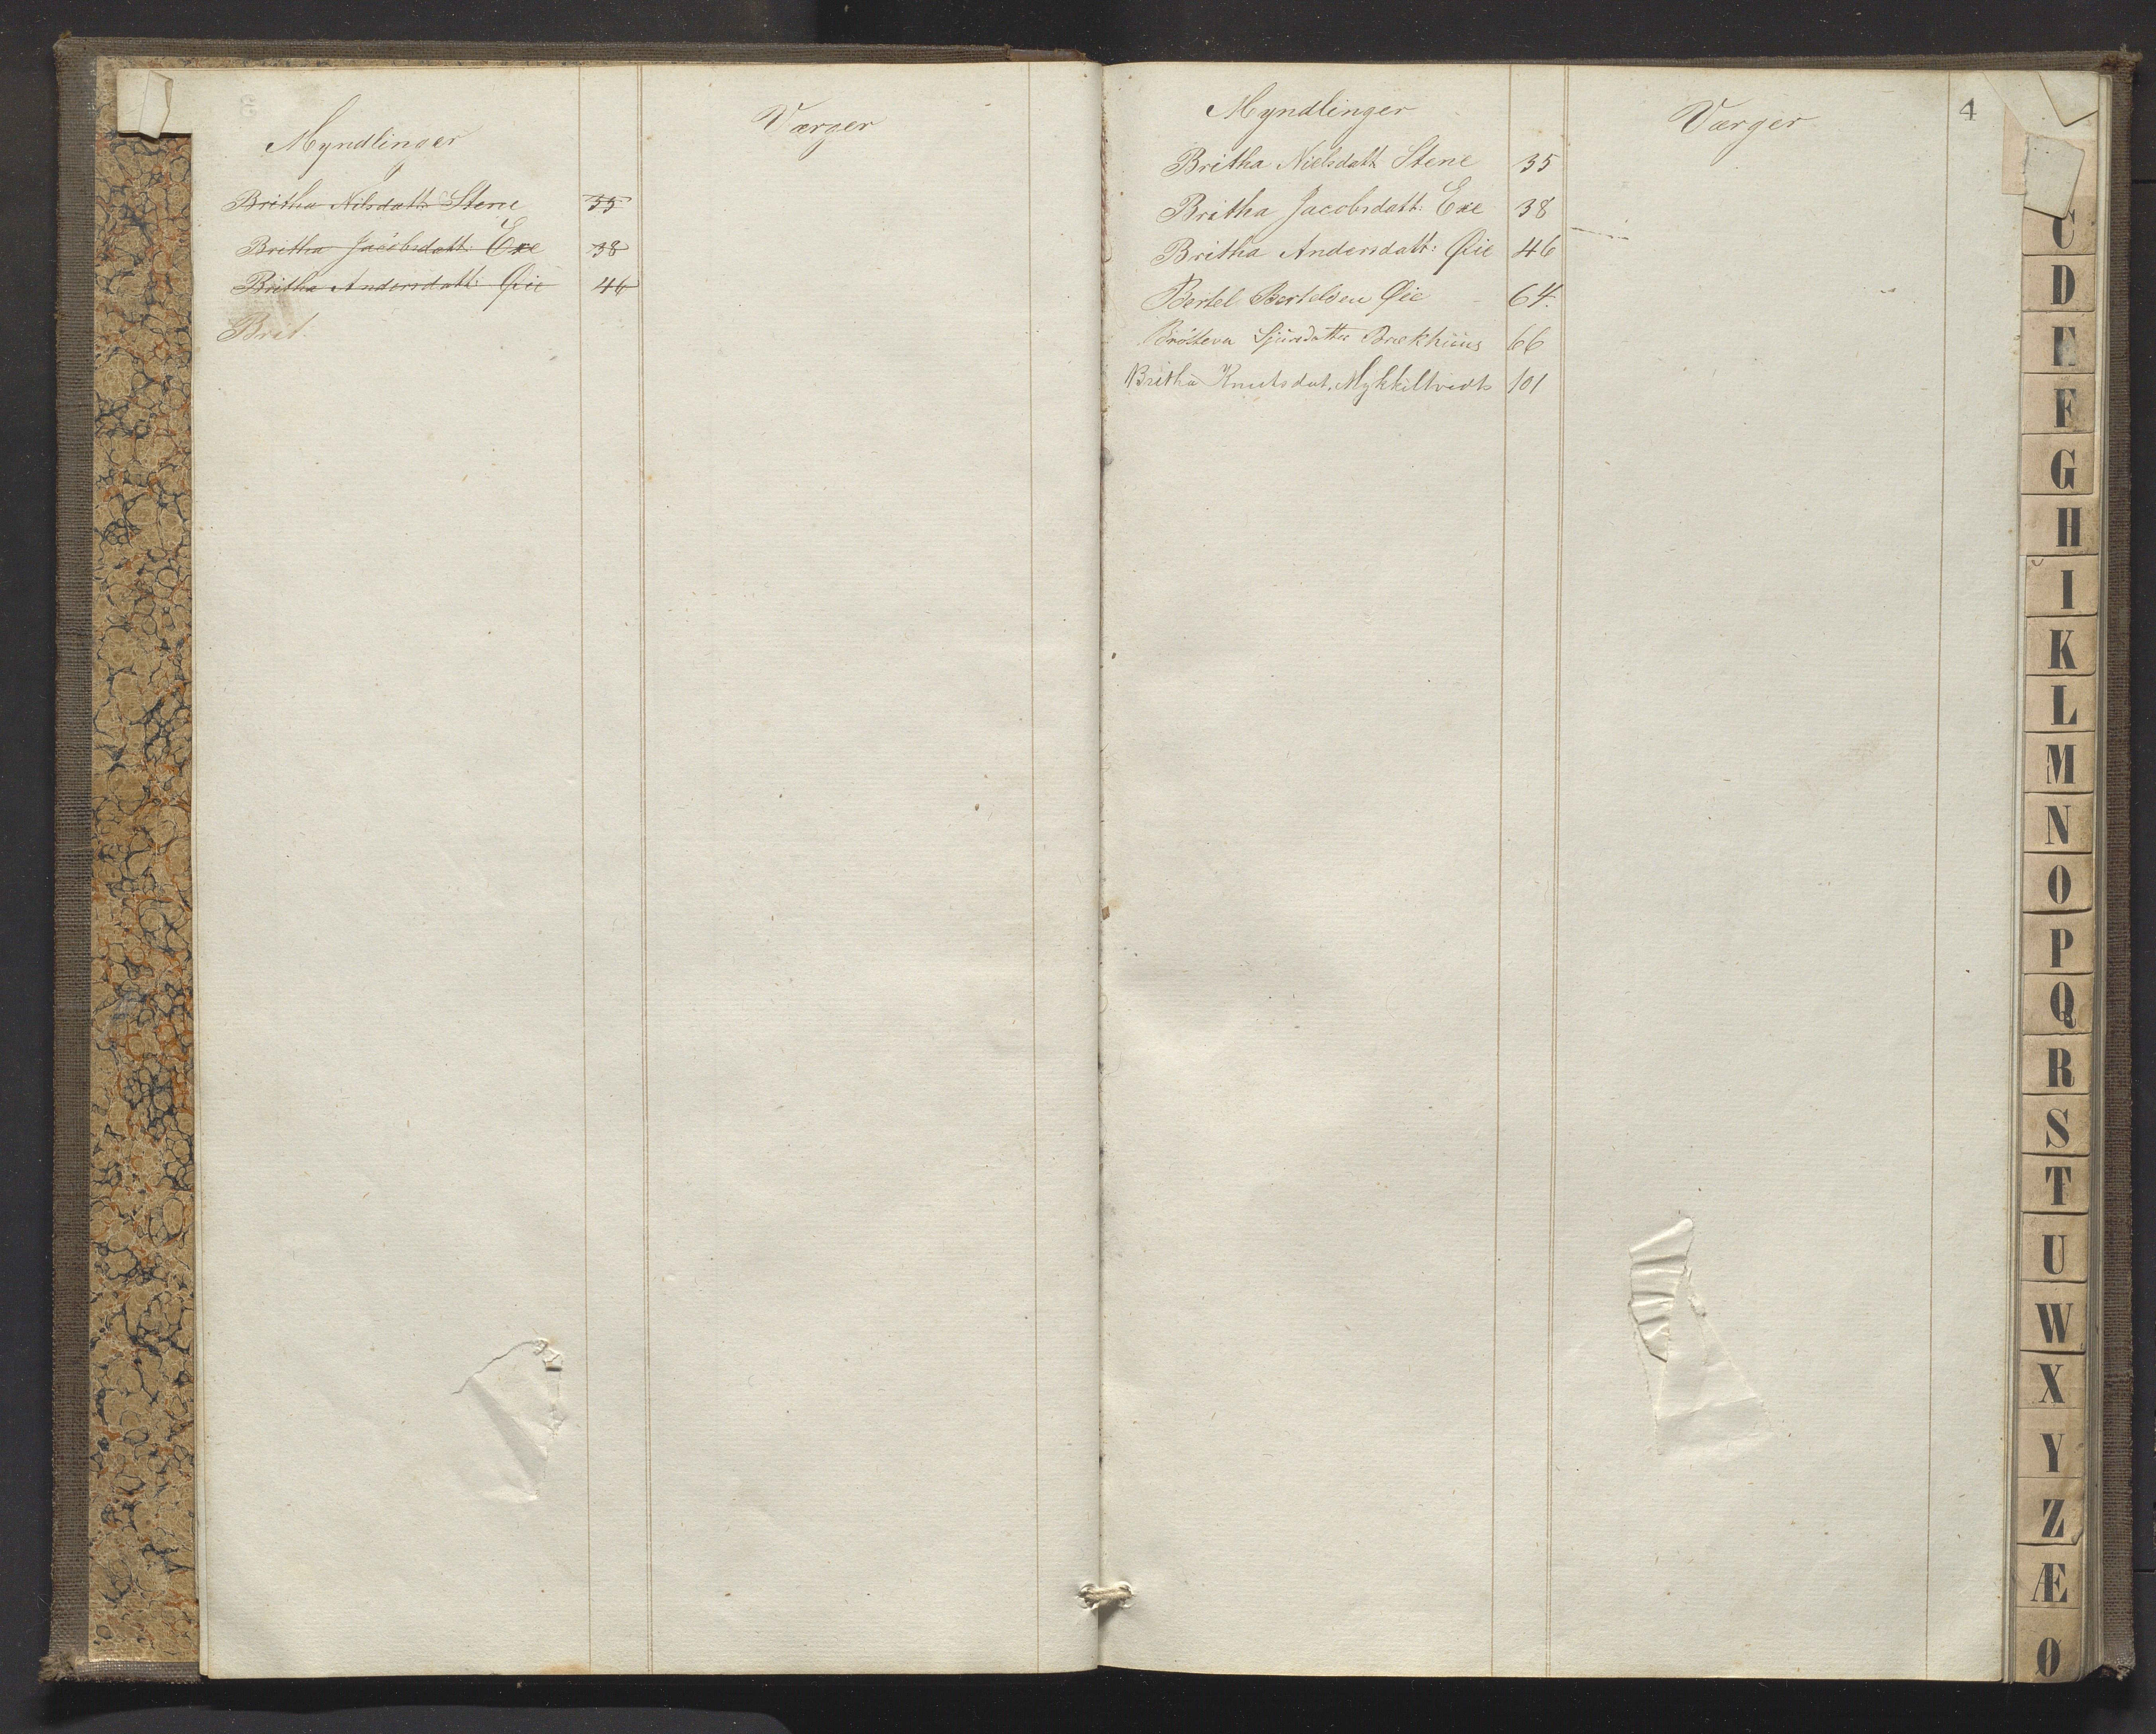 Myndlinger
Værger
Britha Nilsdatt: Stene 35
Britha Jacobsdatt: Exe 38
Britha Andersdatt: Øie 46
Brit.
4
Myndlinger
Værger
Britha Nielsdatt Stene 35
Britha Jacobsdatt: Exe 38
Britha Andersdatt: Øie 46
Bertel Bertelsen Øie 64.
Sjursdatter Brækhuus 66
Britha Knutsdat. Mykkeltvedt 101
C
D
E
F
G
H
I
K
L
M
N
O
P
Q
R
S
T
U
W
X
Y
Z
Æ
Ø